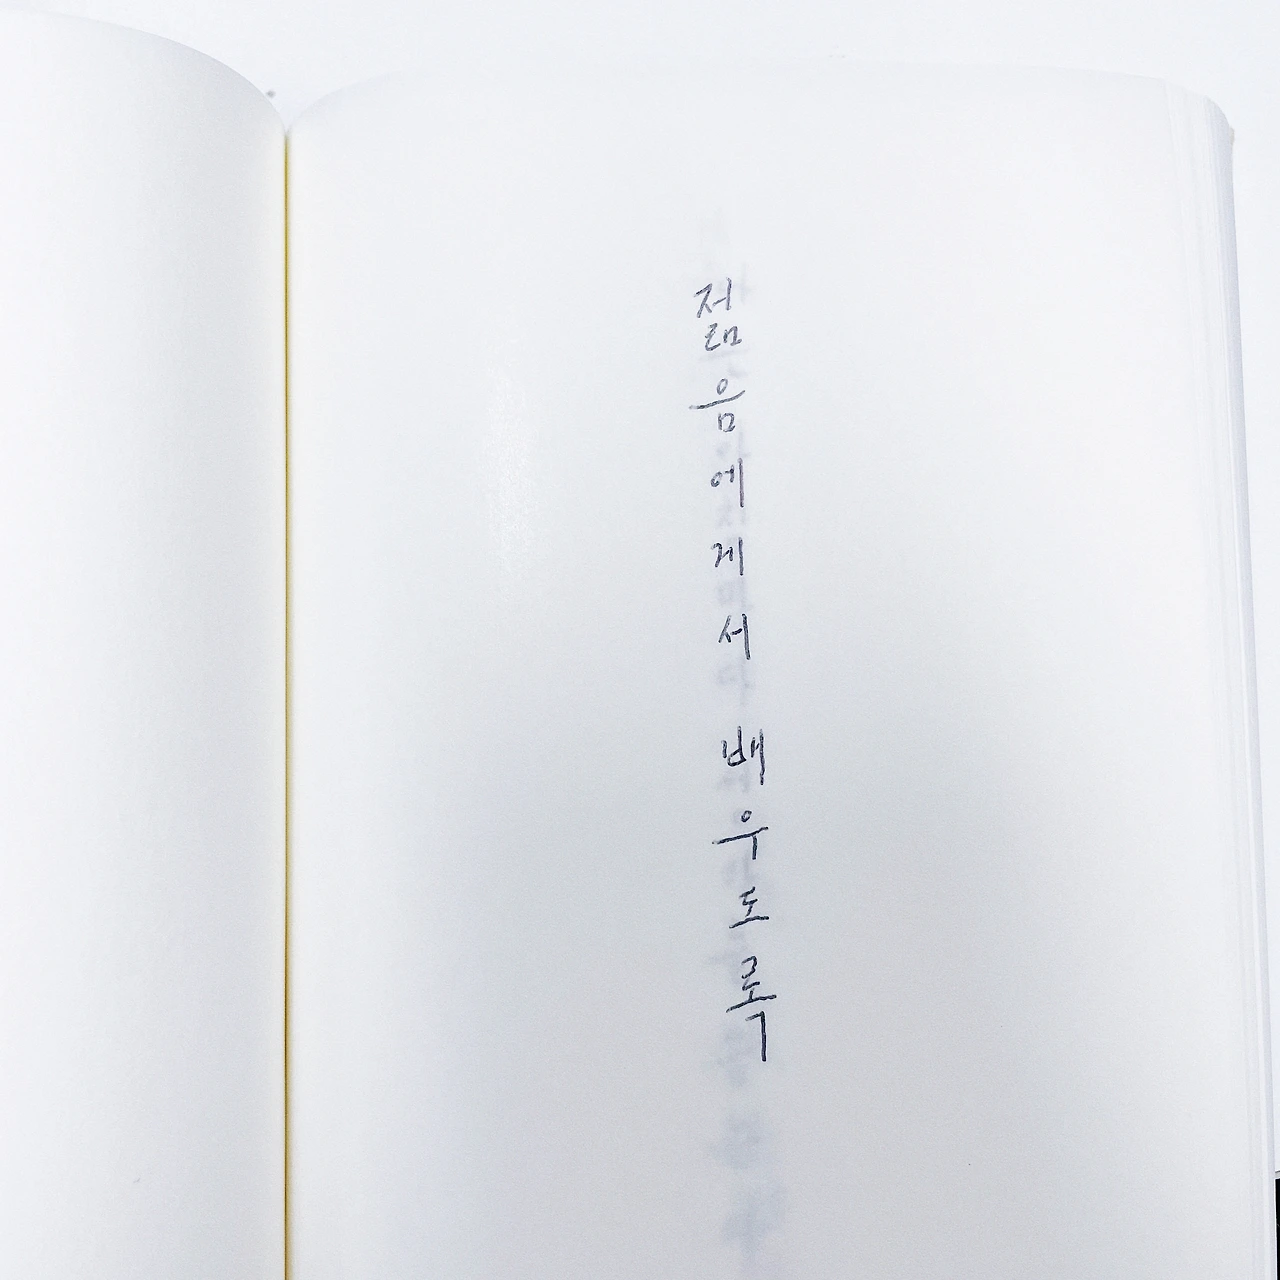 젊음에게서 배우도록